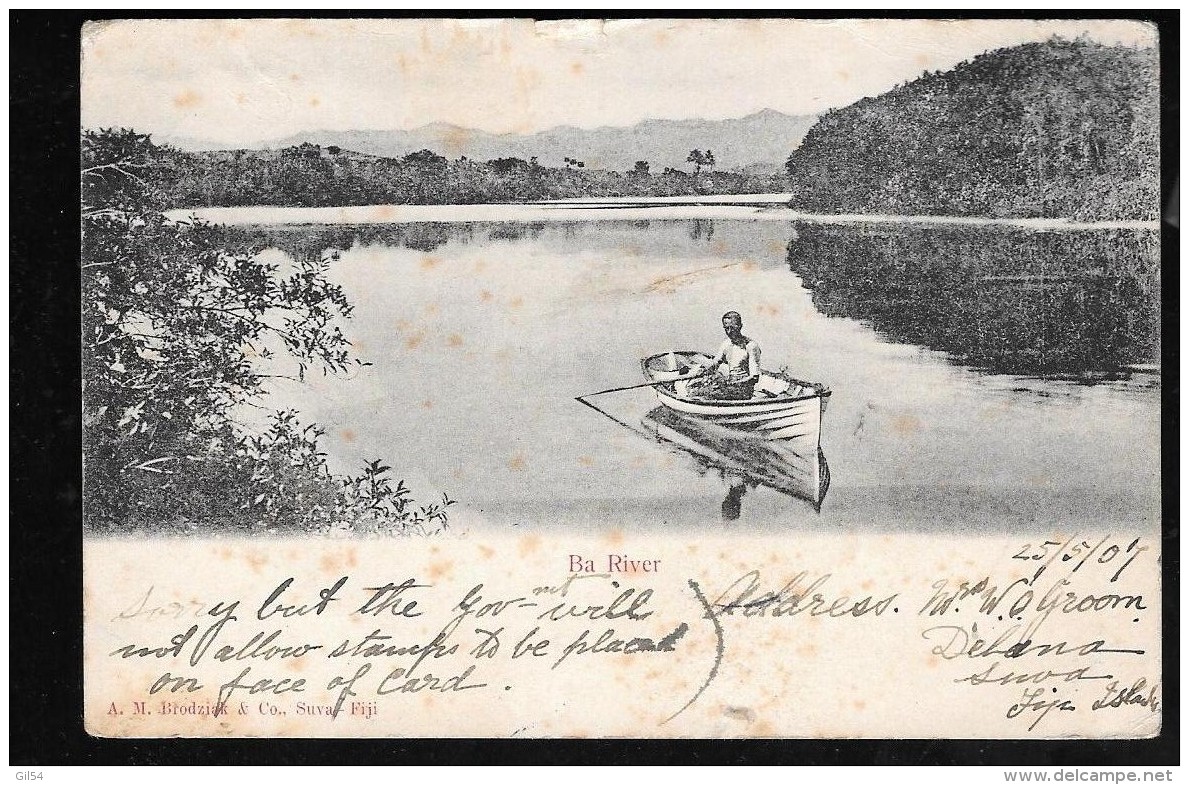 Ba River
25/5/07
Sorry but the Gov-mt will
not allow stamps to be placed
on face of Card.
Address. Mrs W. O. Groom.
Suva
Fiji Islands
A. M. Brodziak & Co., Suva, Fiji
Gil54
www.delcampe.net